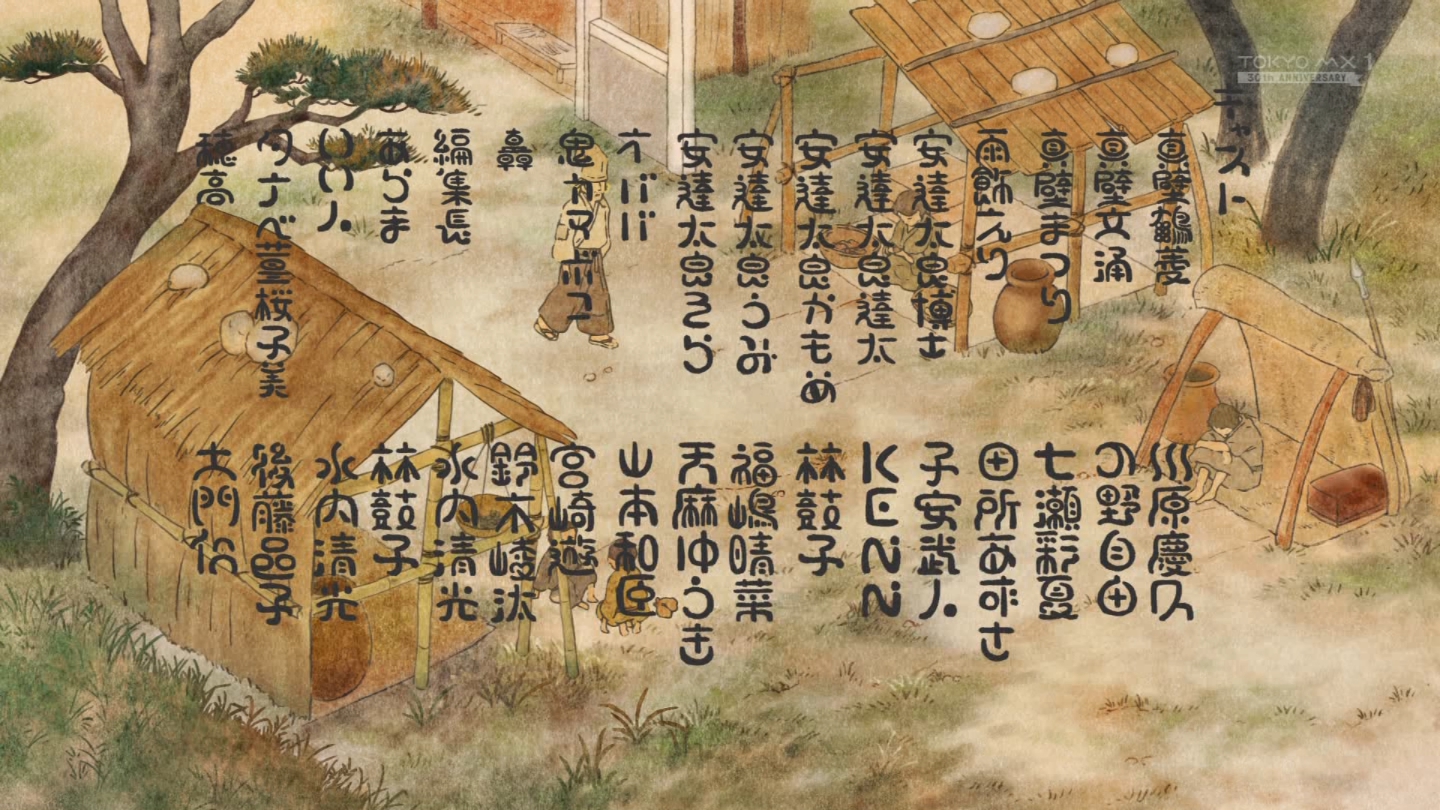 TOKYO MX 1
30th ANNIVERSARY
キャスト
真壁鶴 川原慶久
真壁文涌
真壁まつり 七瀬彩夏
雨飾えり 田所あずさ
安達太良博士 子安武人
安達太良達太 KENN
安達太良かもめ 林鼓子
安達太良うみ 福嶋晴菜
安達太良そら 天麻ゆうき
オババ 山本和臣
鬼カマボコ 宮崎遊
轟 鈴木崚汰
編集長 水内清光
あらま 林鼓子
いい人 水内清光
タナベ菫桜子美 後藤邑子
穂高